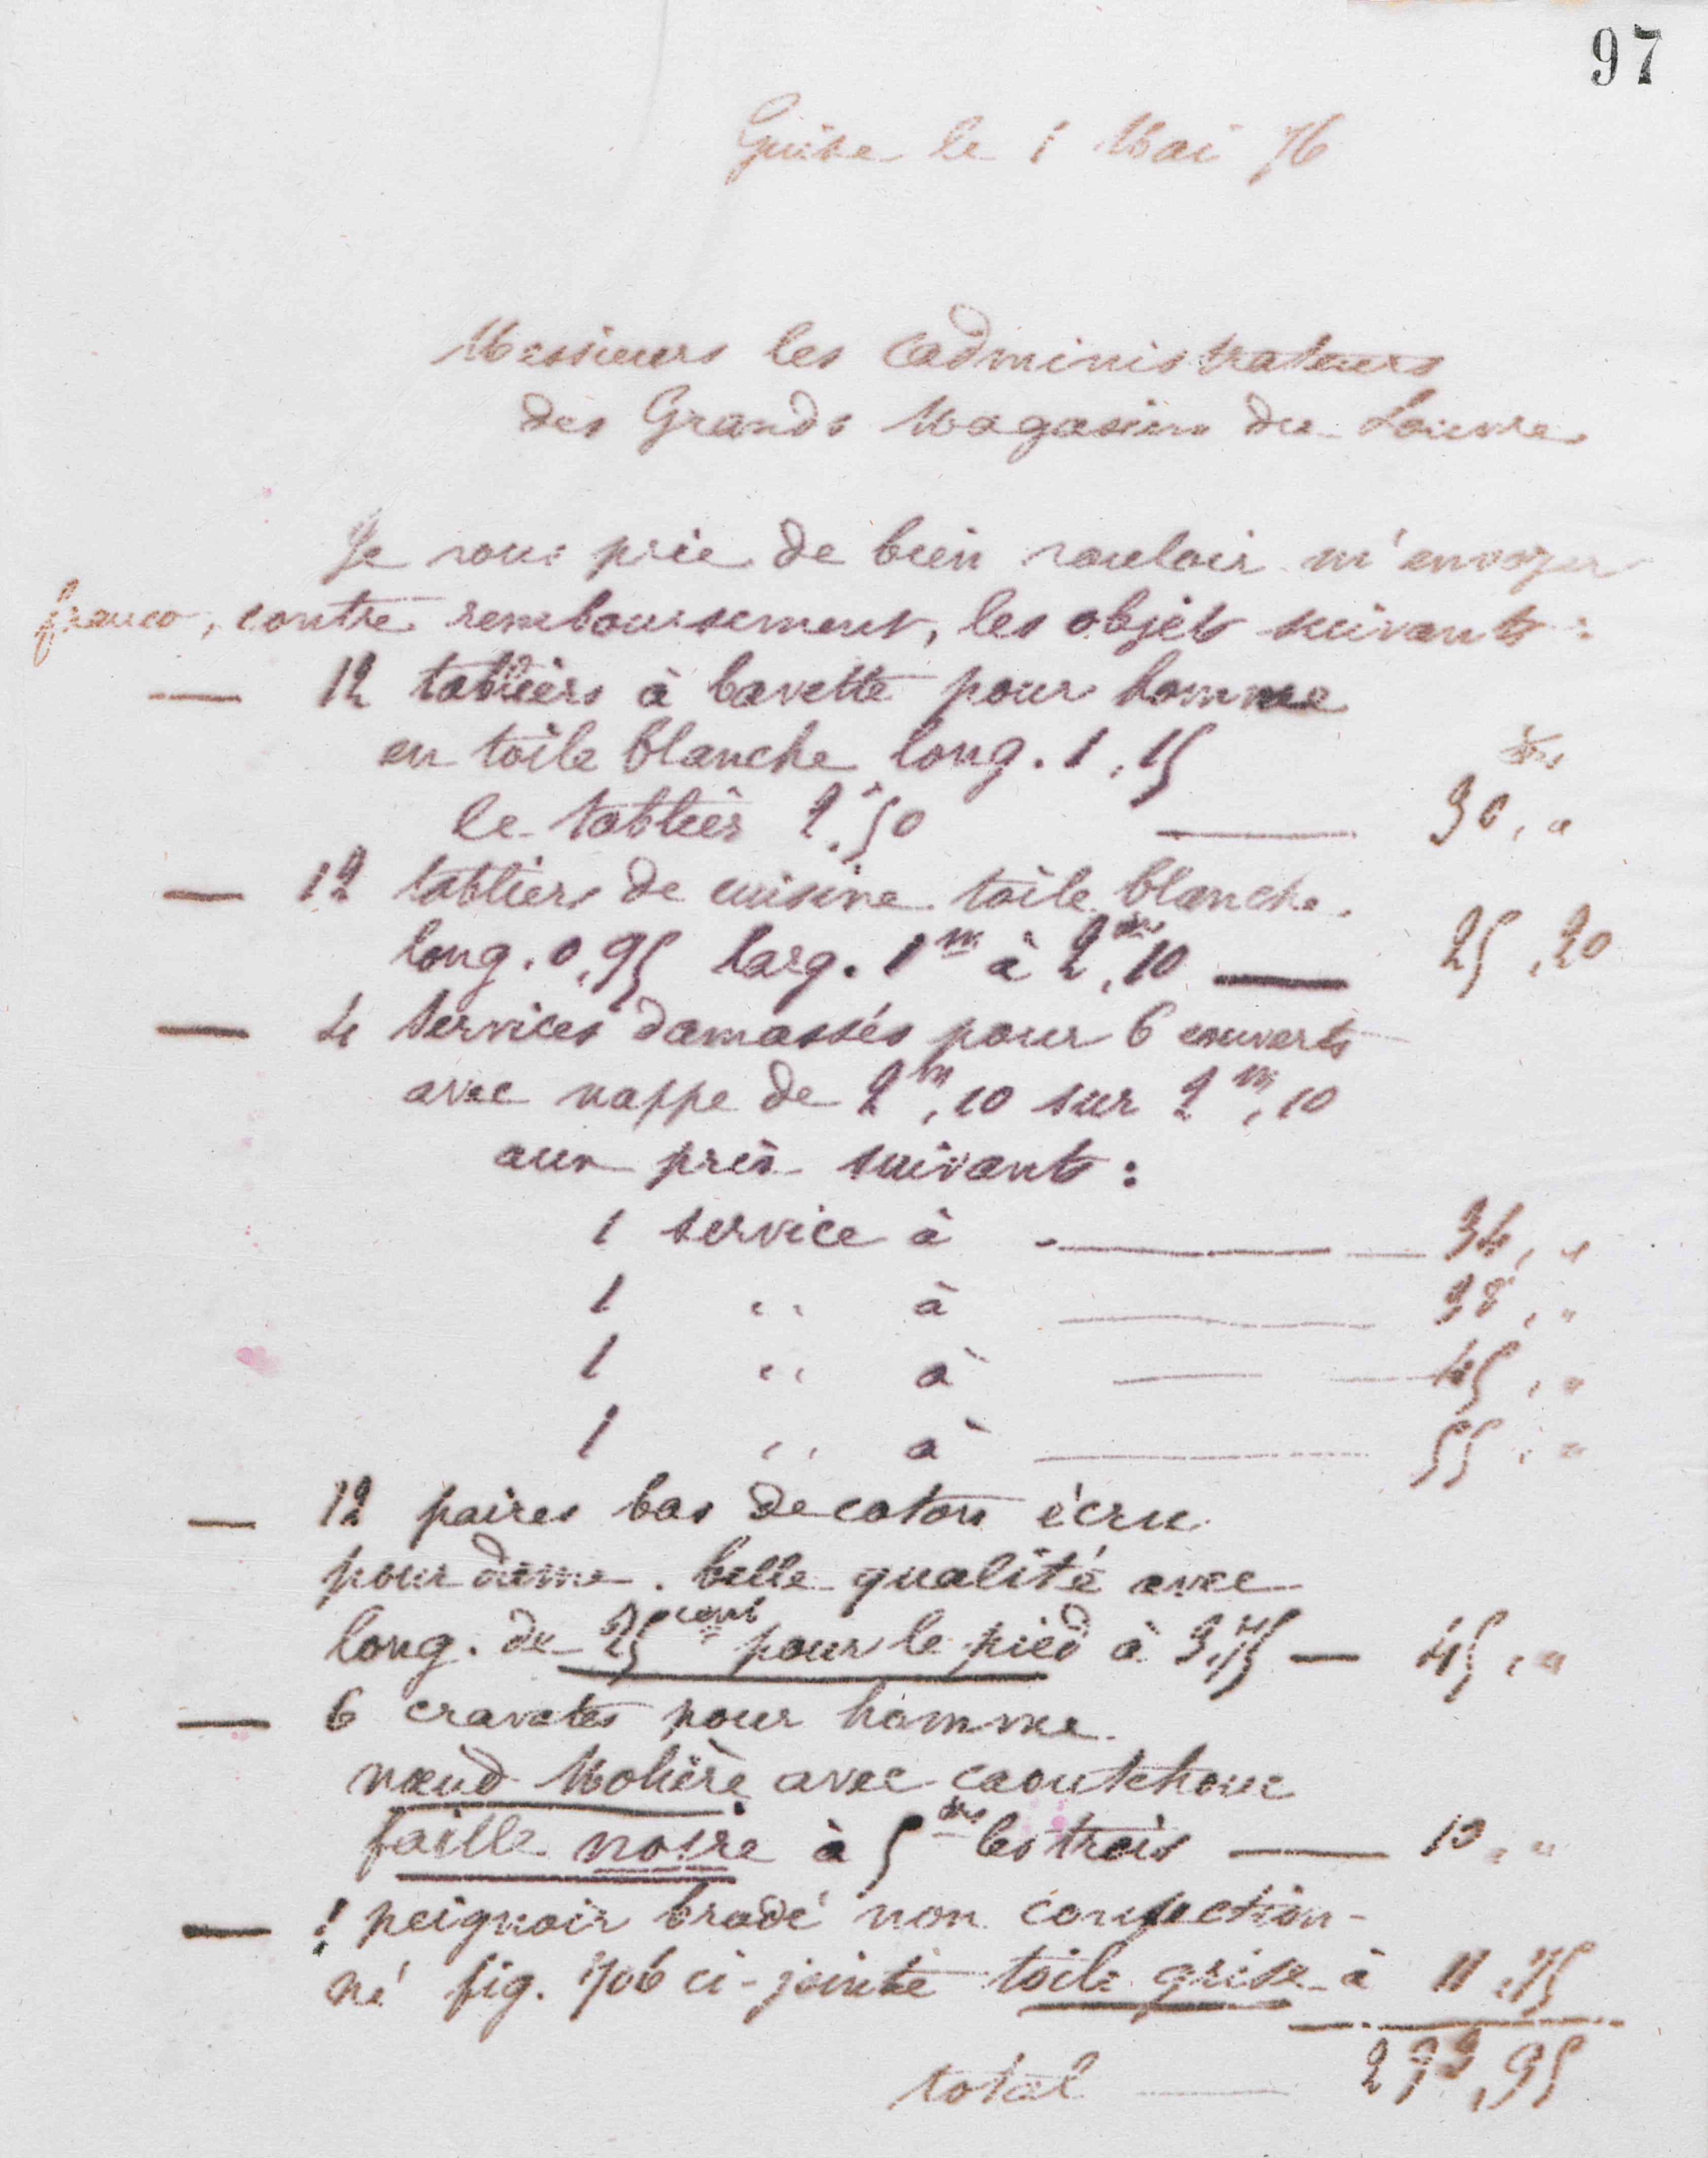 97
Guise le 1 Mai 76
Messieurs les administrateurs
des Grands Magasins du Louvre
Je vous prie de bien vouloir m'envoyer
franco, contre remboursement, les objets suivants :
— 12 tabliers à bavette pour homme
en toile blanche long. 1,15
frs
le tablier 2,50 — 30, "
— 12 tabliers de cuisine toile blanche.
long. 0,95 larg. 1m à 2frs,10 — 25,20
— 4 services damassés pour 6 couverts
avec nappe de 2m,10 sur 2m,10
aux prix suivants :
1 service à — 34, "
1 " à — 38, "
1 " à — 45, "
1 " à — 55, "
— 12 paires bas de coton écru
pour dame. belle qualité avec
long. de 25cent pour le pied à 3,75 — 45, "
— 6 cravates pour homme
nœud Molière avec caoutchouc
faille noire à 5frs les trois — 10, "
— 1 peignoir brodé non confection-
né fig. 706 ci-jointe toile grise à 11,75
total — 293,95